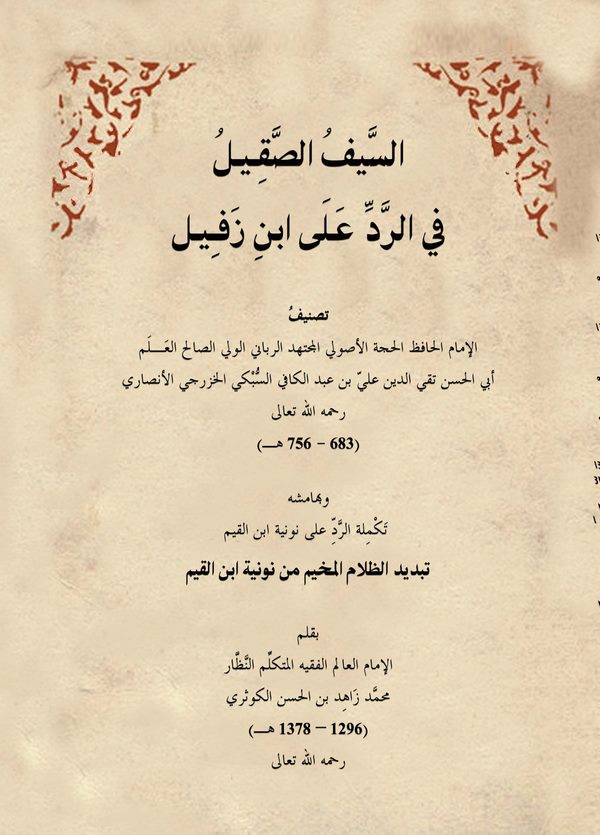 السَّيفُ الصَّقِيلُ
في الرَّدِّ عَلَى ابنِ زَفِيل
تصنيفُ
الإمام الحافظ الحجة الأصولي المجتهد الرباني الولي الصالح العَـــلَم
أبي الحسن تقي الدين عليّ بن عبد الكافي السُّبْكي الخزرجي الأنصاري
رحمه الله تعالى
(683 - 756 هــ)
وبهامشه
تَكْمِلة الرَّدِّ على نونية ابن القيم
تبديد الظلام المخيم من نونية ابن القيم
بقلم
الإمام العالم الفقيه المتكلِّم النَّظَّار
محمَّد زَاهِد بن الحسن الكوثري
(1296 – 1378 هــ)
رحمه الله تعالى